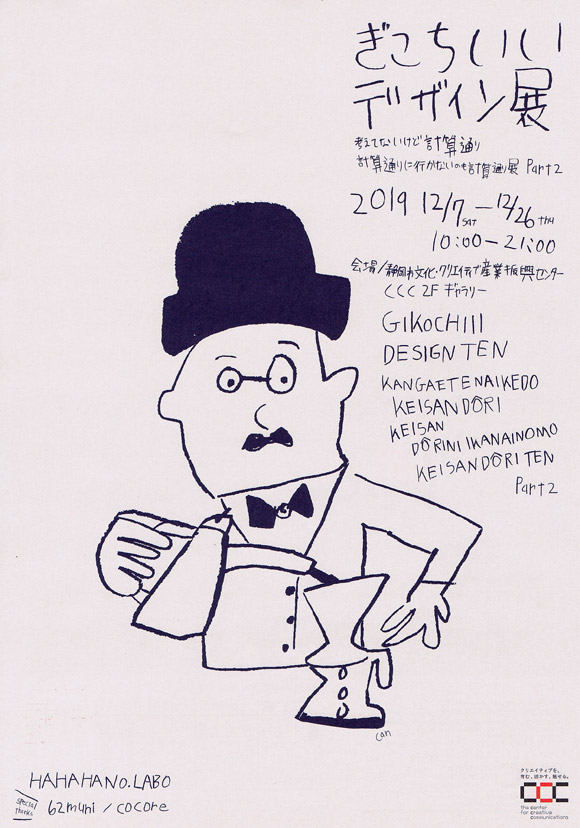 ぎこちいい
デザイン展
考えてないけど計算通り
計算通りに行かないのも計算通り展 Part2
2019 12/7 SAT — 12/26 THU
10:00 — 21:00
会場/静岡市文化・クリエイティブ産業振興センター
CCC 2F ギャラリー
GIKOCHIII
DESIGN TEN
KANGAETENAIKEDO
KEISANDÔRI
KEISAN
DÔRINI IKANAINOMO
KEISANDÔRI TEN
Part2
can
HAHAHANO.LABO
special thanks
62muni / cocore
クリエイティブを、
育む。活かす。魅せる。
CCC
the center
for creative
communications